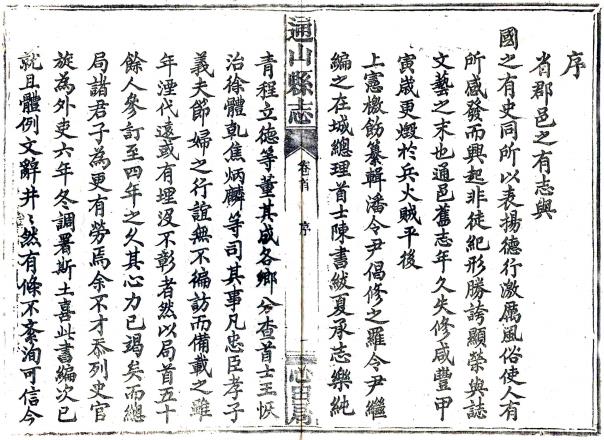 序
省郡邑之有志與
國之有史同所以表揚德行激厲風俗使人有
所感發而興起非徒紀形勝誇顯榮與誌
文藝之末也通邑舊志年久失修咸豐甲
寅歲更燬於兵火賊平後
上憲檄飭纂輯潘令尹倡修之羅令尹繼
編之在城總理首士陳書紱夏承志樂純
通山縣志
卷首 序
心田局
青程立德等董其成各鄉分查首士王恢
治徐體乹焦炳麟等司其事凡忠臣孝子
義夫節婦之行誼無不徧訪而備載之雖
年湮代遠或有埋沒不彰者然以局首五十
餘人參訂至四年之久其心力已竭矣而總
局諸君子為更有勞焉余不才忝列史官
旋為外吏六年冬調署斯土喜此書編次已
就且體例文辭井〻然有條不紊洵可信今